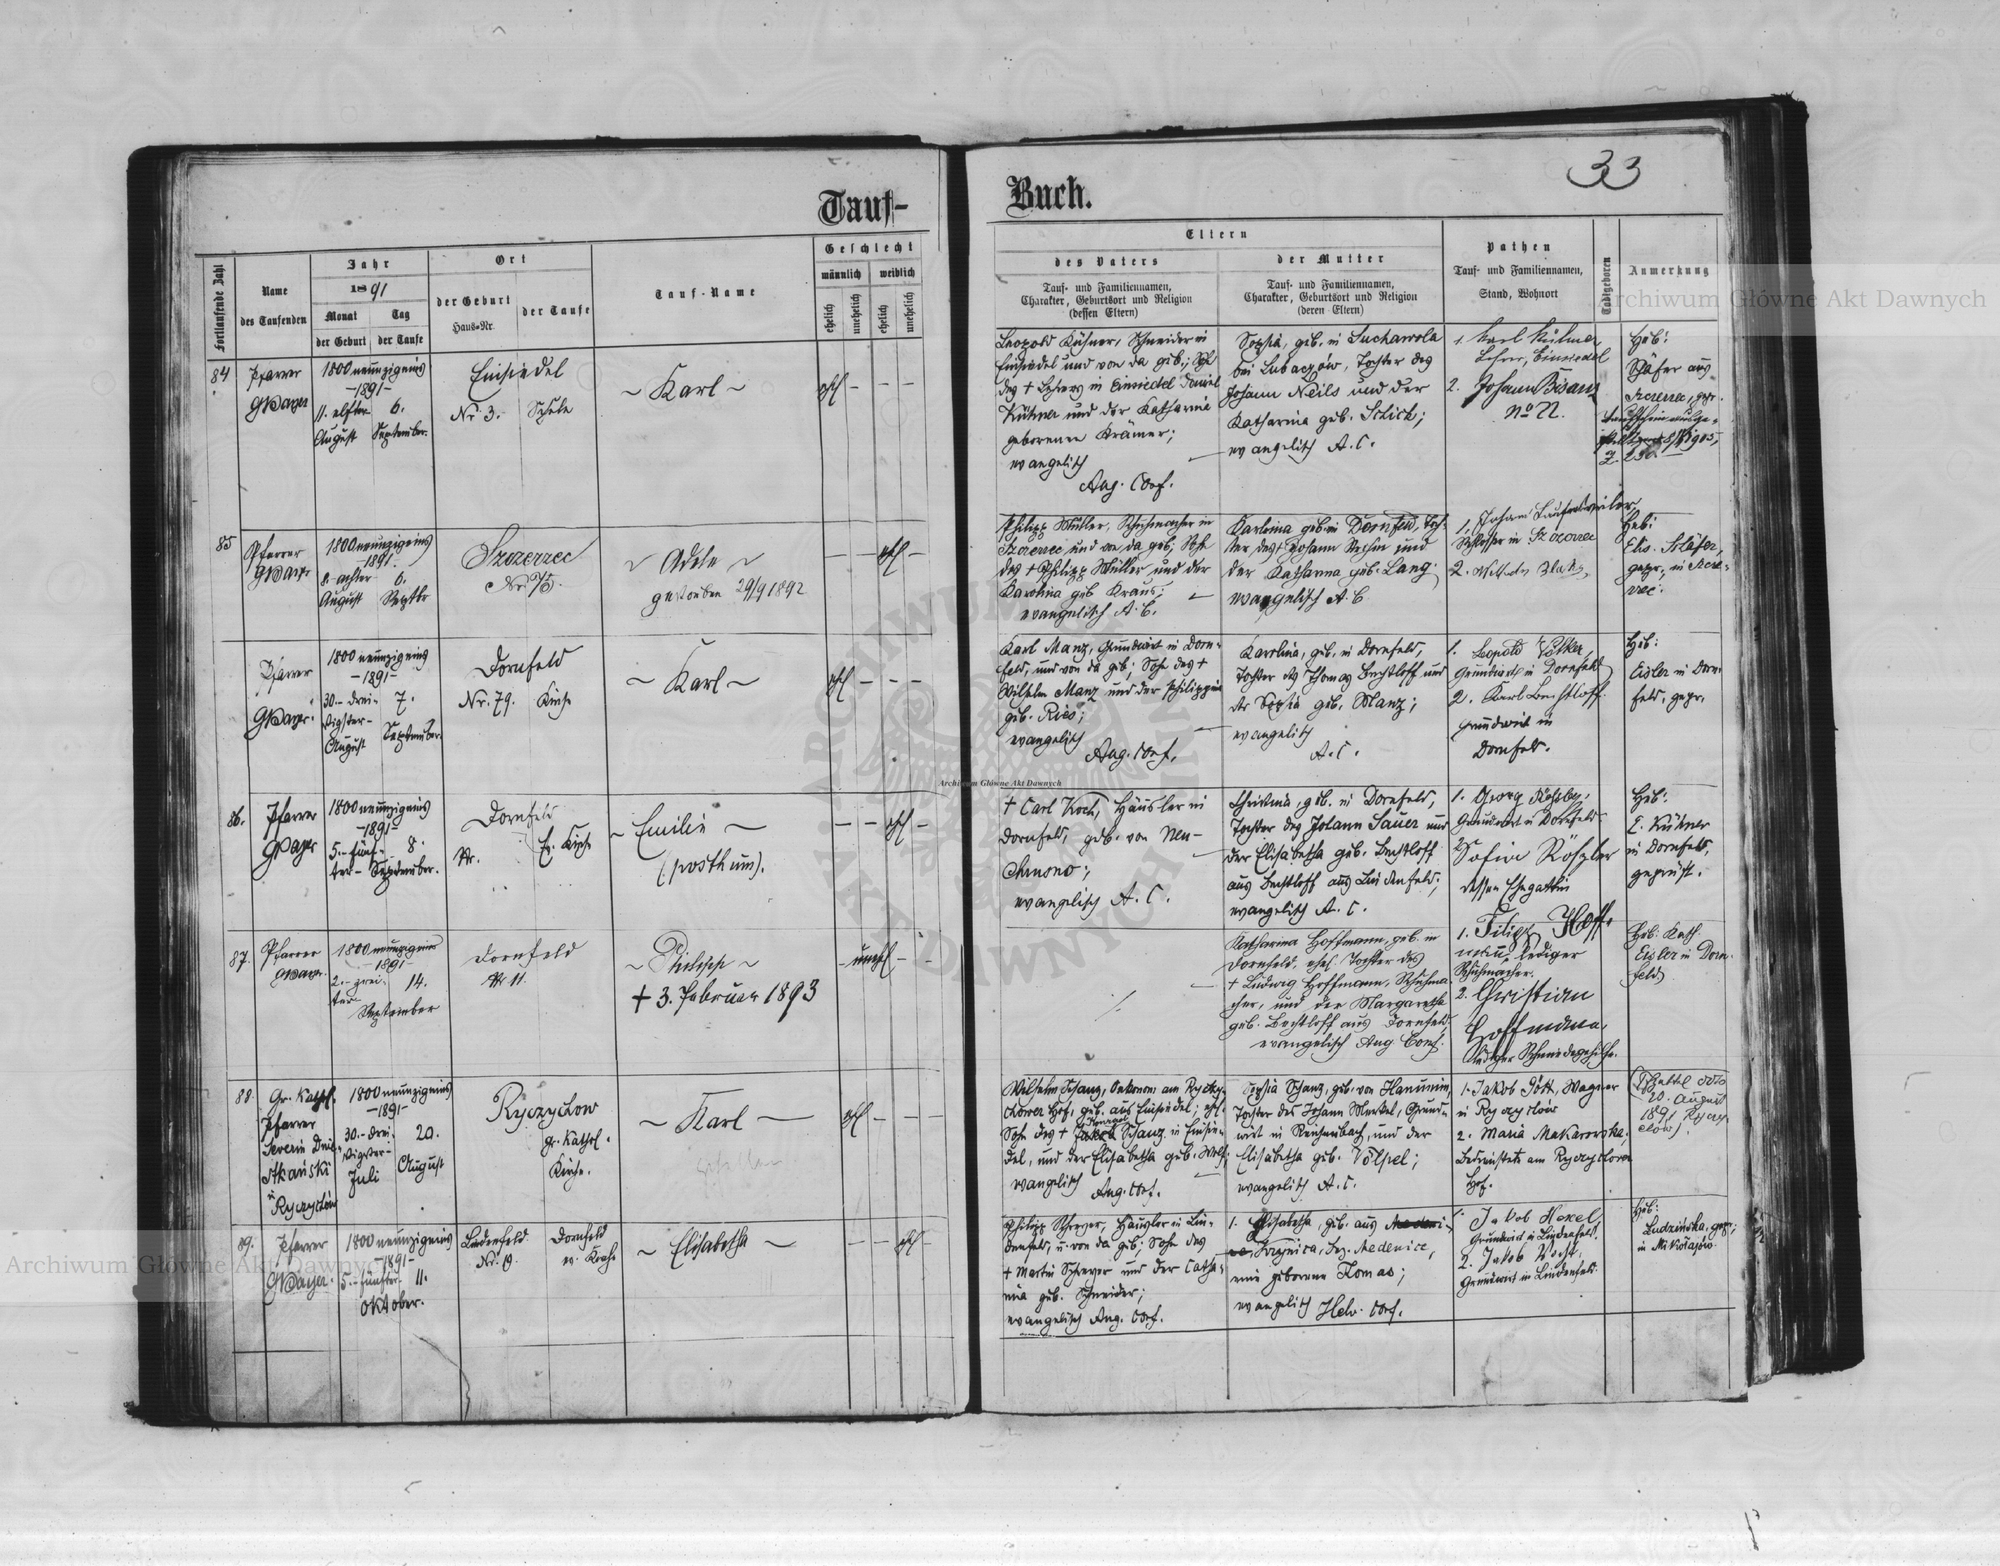 33
Tauf-Buch.
Fortlaufende Zahl
Name
des Taufenden
Jahr
1891
Monat
Tag
der Geburt
der Taufe
Ort
der Geburt
Haus-Nr.
der Taufe
Tauf-Name
Geschlecht
männlich
weiblich
ehelich
unehelich
ehelich
unehelich
Eltern
des Vaters
Tauf- und Familiennamen,
Charakter, Geburtsort und Religion
(dessen Eltern)
der Mutter
Tauf- und Familiennamen,
Charakter, Geburtsort und Religion
(deren Eltern)
Pathen
Tauf- und Familiennamen,
Stand, Wohnort
Todtgeboren
Anmerkung
84
Pfarrer
1800 neunzigeins
-1891-
11. elfter
August
6.
September.
Einsiedel
Nr. 3.
Schule
~ Karl ~
ehl - - -
Leopold Kühner, Schneider in
Einsiedel und von da geb.; Sohn
des + Lehrers in Einsiedel Daniel
Kühner und der Katharina
geborenen Krämer;
evangelisch
Aug. Conf.
Sophia, geb. in Sucharwola
bei Lubaczów, Tochter des
Johann Neils und der
Katharina geb. Schick;
evangelisch A. C.
1. Karl Kühner
Lehrer, Einsiedel
2. Johann Bisanz
No 22.
Heb:
Schäfer aus
85
Pfarrer
1800 neunzigeins
1891.
8. achter
August
6.
Septbr
Szczerzec
~ Adele ~
gestorben 29/9 1892
ehl
Philipp Müller, Schuhmacher in
Szczerzec und von da geb; Sohn
des + Philipp Müller und der
Karolina geb Kraus;
evangelisch A. C.
Karolina geb. in Dornfeld, Toch-
ter des + Johann
der Katharina geb. Lang;
evangelisch A. C
1. Johann
Schlosser in Szczerzec
2.
Heb:
Elis. Schäfer,
gepr., in Szcze-
rzec.
Pfarrer
1800 neunzigeins
-1891-
30.- drei-
ßigster-
August
7.
September.
Dornfeld
Nr. 79.
Kirche
~ Karl ~
ehl - - -
Karl Manz, Grundwirt in Dorn-
feld, und von da geb; Sohn des +
Wilhelm Manz und der Philippina
geb. Ries;
evangelisch
Aug. Conf.
Karolina, geb. in Dornfeld,
Tochter des Thomas Bechtloff und
der Sophia geb. Manz;
evangelisch
A. C.
1. Leopold Völker,
Grundwirth in Dornfeld
2. Karl Bechtloff
Grundwirt in
Dornfeld.
Heb:
Eisler in Dorn-
feld, gepr.
86.
Pfarrer
1800 neunzigeins
-1891-
5.- fünf-
ter-
8.
September.
Dornfeld
Nr.
Ev. Kirche
~ Emilie ~
(posthum).
- - ehl -
+ Carl Koch, Häusler in
Dornfeld, geb. von Neu-
Chrusno;
evangelisch A. C.
Christina, geb. in Dornfeld,
Tochter des Johann Sauer und
der Elisabetha geb. Bechtloff
aus Bechtloff aus Lindenfeld;
evangelisch A. C.
1. Georg Röhsler,
Grundwirt in Dornfeld
2. Sofia Röhsler
dessen Ehegattin
Heb:
E. Kühner
in Dornfeld,
geprüft.
87.
Pfarrer
1800 neunzigeins
-1891-
2.- zwei-
ter
14.
September
Dornfeld
Nr 11.
~ Philipp ~
+ 3. Februar 1893
- unehl - -
Katharina Hoffmann, geb. in
Dornfeld, ehel. Tochter des
+ Ludwig Hoffmann, Schuhma-
cher, und der Margaretha
geb. Bechtloff aus Dornfeld
evangelisch Aug Conf.
1. Filipp Hoff-
mann, lediger
Schuhmacher.
2. Christian
Hoffmann,
lediger Schmiedegehilfe.
Heb: Kath.
Eisler in Dorn-
feld
88.
Gr. Kathol.
Pfarrer
Severin
in
Ryczychów
1800 neunzigeins
-1891-
30.- drei-
ßigster-
Juli
20.
August
Ryczychow
gr. Kathol.
Kirche.
~ Karl ~
ehl - - -
Wilhelm Schanz, Oekonom am Ryczy-
chower Hof, geb. aus Einsiedel; ehl.
Sohn des + Schanz in Einsie-
del, und der Elisabetha geb. Wolf;
evangelisch Aug. Conf.
Sophia Schanz, geb. von Hanunin,
Tochter des Johann Merkel, Grund-
wirt in Reichenbach, und der
Elisabetha geb. Völpel;
evangelisch A. C.
1. Jakob Gött, Wagner
in Ryczychów
2. Maria Makarowska,
Bedienstete am Ryczychower
Hof.
20. August
1891 Ryczy-
chów).
89.
Pfarrer
1800 neunzigeins
-1891-
5.- fünfter-
11.
Oktober.
Lindenfeld
Nr. 9.
Dornfeld
ev. Kirche
~ Elisabetha ~
- - ehl -
Philipp Schreyer, Häusler in Lin-
denfeld, u. von da geb; Sohn des
+ Martin Schreyer und der Catha-
rina geb. Schneider;
evangelisch Aug. Conf.
1. Elisabetha, geb. aus
Krynica, Bez. Medenice,
eine geborene Thomas;
evangelisch Helv. Conf.
1. Jakob Hexel
Grundwirt in Lindenfeld,
2. Jakob Vogt,
Grundwirt in Lindenfeld.
Heb:
Ludzińska, gepr.;
in Mikołajów.
Archiwum Główne Akt Dawnych
Archiwum Główne Akt Dawnych
Archiwum Główne Akt Dawnych